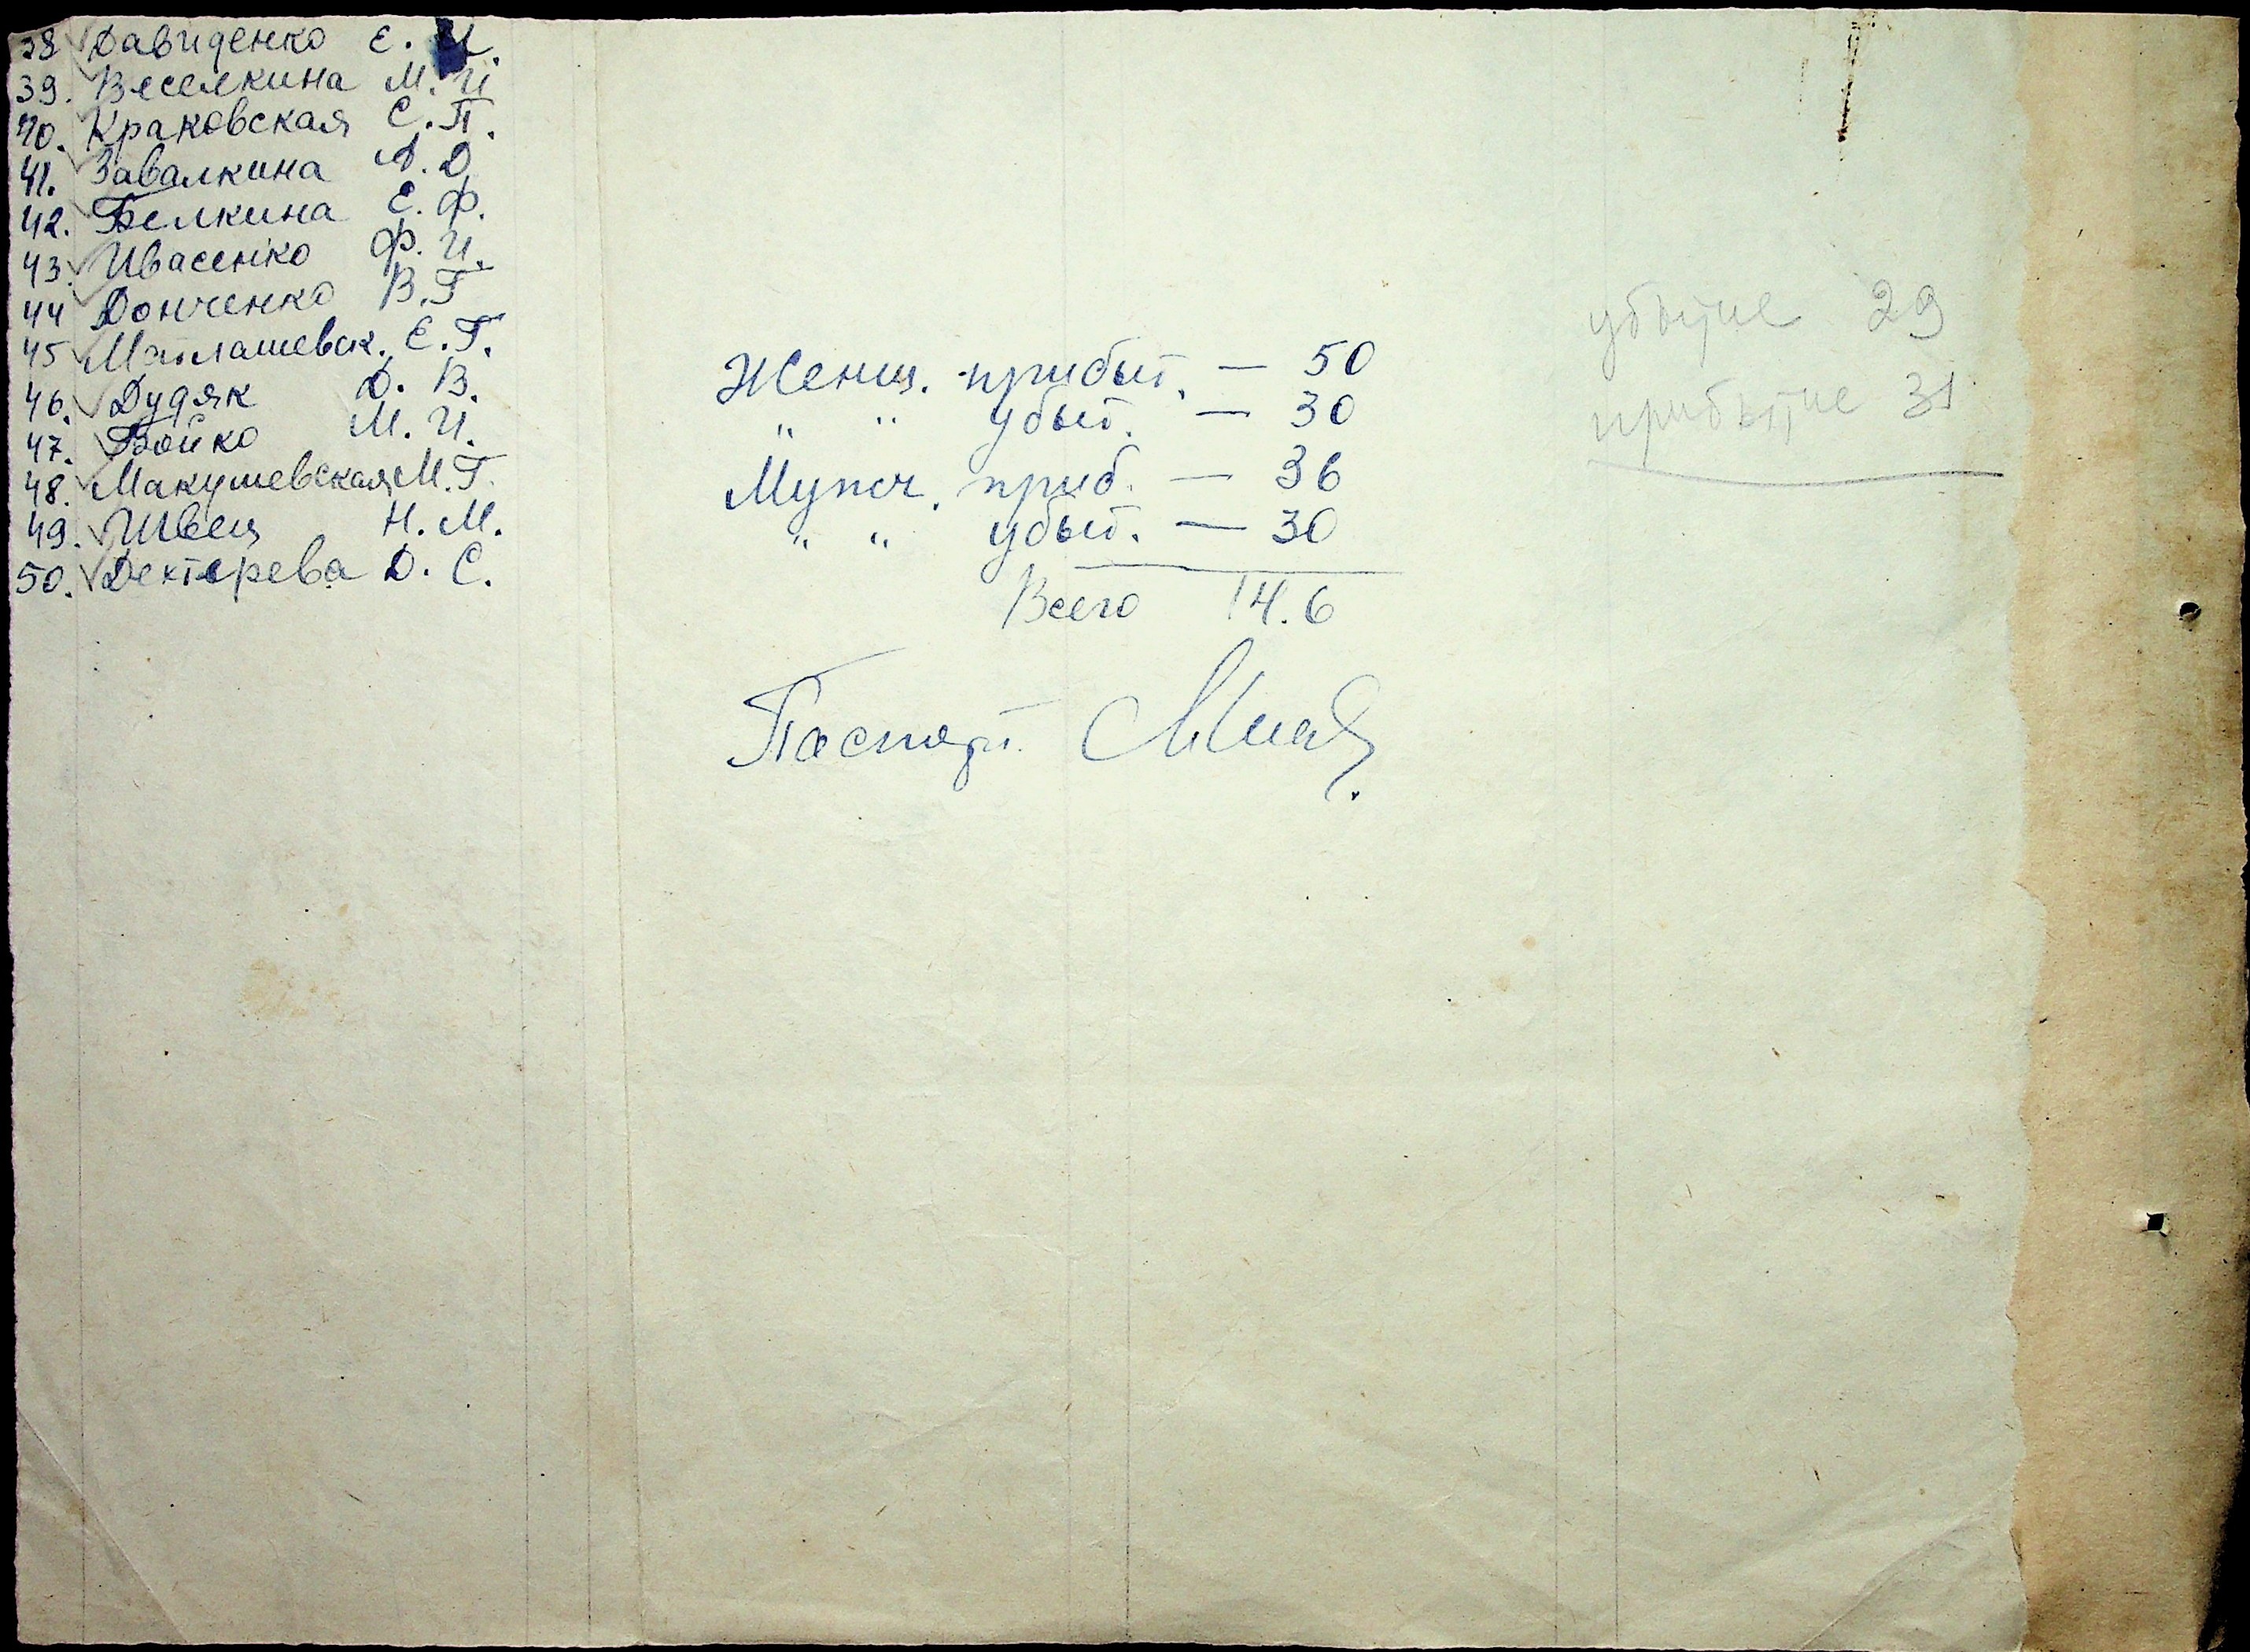 38 Давиденко Е. И.
39. Веселкина М. И
40. Краковская Е. П.
41. Завалкина А. Д
42. Белкина Е. Ф.
43. Ивасенко Ф. И.
44 Донченко В. Г
45 Матлашевск. Е. Г.
46. Дудяк Д. В.
47. Бойко М. И.
48. Макушевская М. Г.
49. Швец Н. М.
50. Дехтерева Д. С.
Женщ. прибыт. — 50
" " убыт. — 30
Мужч. приб. — 36
" " убыт. — 30
Всего 14.6
Паспорт.
убытие 29
прибытие 31